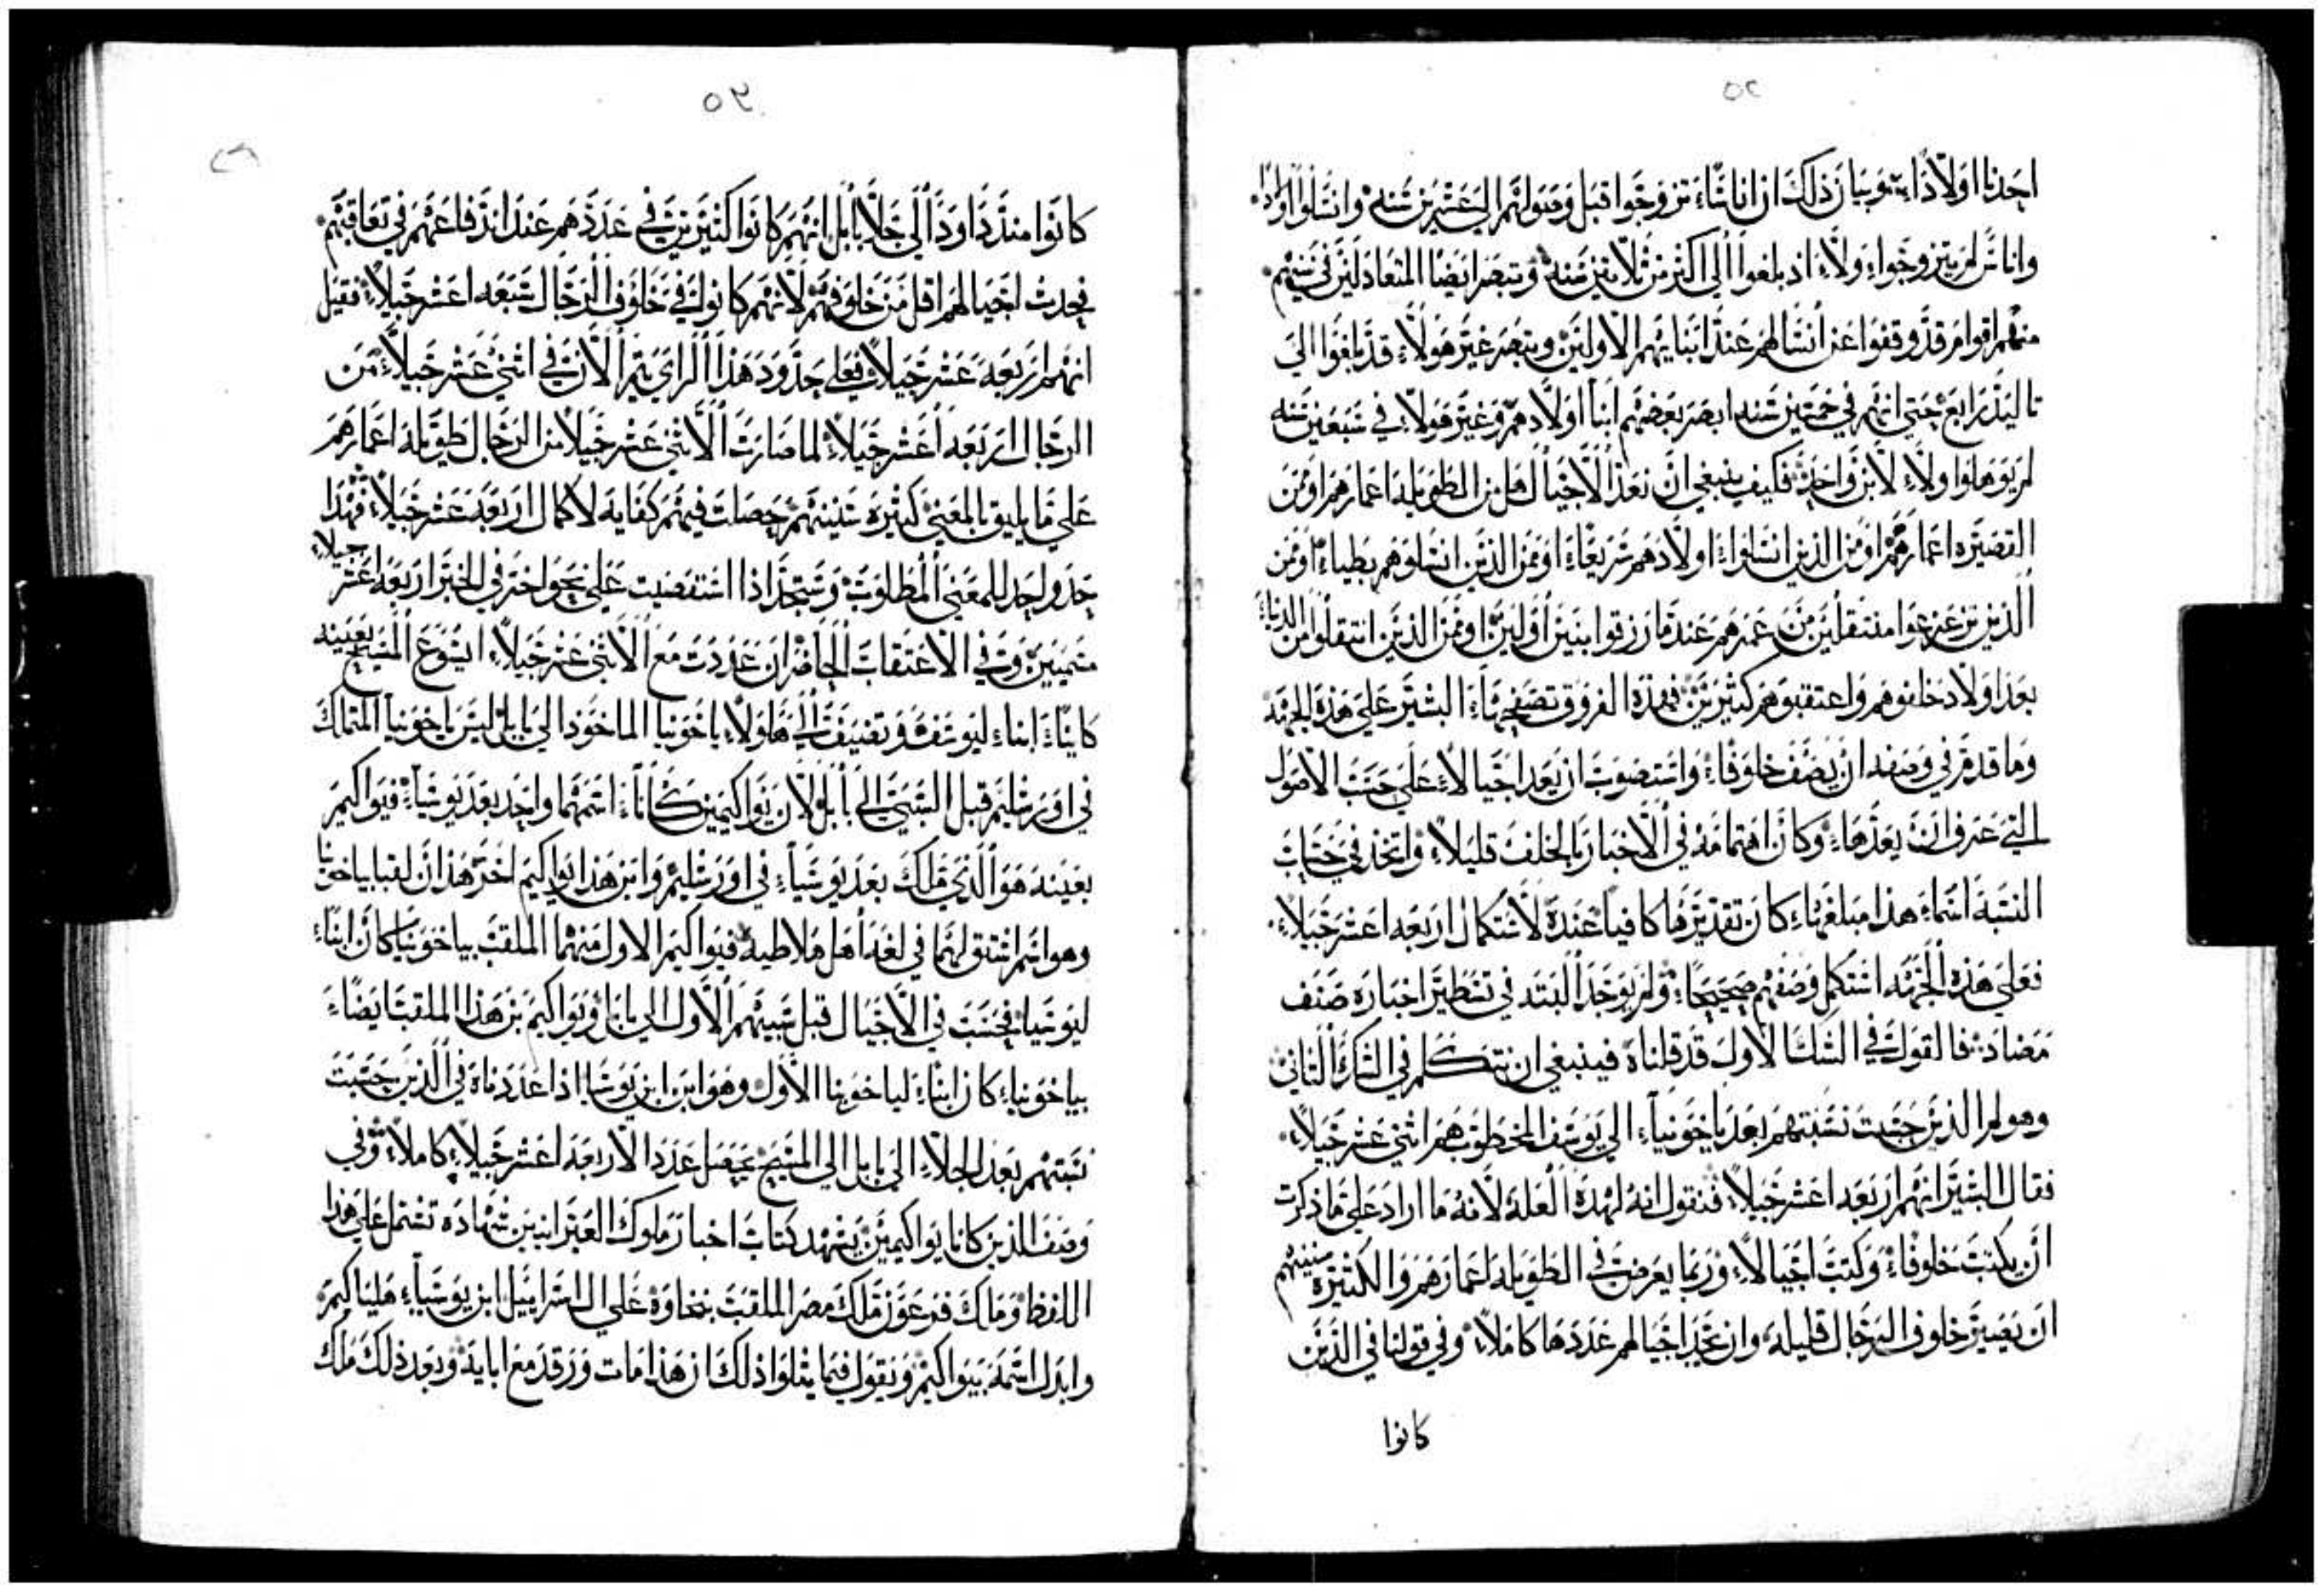 ٥٢
احدنا اولادًا وبيان ذلك ان اناسًا تزوجوا قبل وصولهم الي عشرين سنه وانسلوا اولادًا
واناس لم يتزوجوا ولا اذ بلغوا الي اكثر من ثلاثين سنه وتبصر ايضًا المتعادلين في سنهم
منهم اقوام قد وقفوا عن انسالهم عند ابنايهم الاولين وتبصر غير هولاء قد بلغوا الي
تاليد رابع حتي انهم في خمسين سنه ابصر بعضهم ابنا اولادهم وغير هولاء في سبعين سنه
لم يوهلوا ولا لابن واحد فكيف ينبغي ان نعد الاجيال هل من الطويله اعمارهم او من
القصيره اعمارهم او من الذين انسلوا اولادهم سريعًا او من الذين انسلوهم بطيا او من
الذين نزعوا منتقلين من عمرهم عندما رزقوا بنين اولين او من الذين انتقلوا من الدنيا
بعد اولاد خلفوهم واعتقبوهم كثيرين فهذه الفروق تصفحها البشير علي هذه الجهه
وما قدم في وصفه ان يصف خلوفًا واستصوب ان يعد اجيالًا علي حسب الاصول
التي عرف ان يعدها وكان اهتمامه في الاخبار بالخلف قليلًا واتخذ في حساب
النسبه اسماء هذا مبلغها كان تقديرها كافيًا عنده لاستكمال اربعه اعشر جيلًا
فعلي هذه الجهه استكمل وصفهم صحيحًا ولم يوجد البته في تسطير اخباره صنف
مضاد فالقول في الشك الاول قد قلناه فينبغي ان نتكلم في الشك الثاني
وهو لم الذين حسبت نسبتهم بعد ياخونيا الي يوسف الخطوب هم اثني عشر جيلًا
فقال البشير انهم اربعه اعشر جيلًا فنقول انه لهذه العله لانه ما اراد علي ما ذكرت
ان يكتب خلوفًا وكتب اجيالًا وربما يعرض في الطويله اعمارهم والكثيره سنينهم
ان يصير خلوف الرجال قليله وان تجد اجيالهم عددها كاملًا وفي قولنا في الذين
كانوا
٥٣
كانوا منذ داود الي جلا بابل انهم كانوا كثيرين في عددهم عند اندفاعهم في تعاقبهم
فحدث اجيالهم اقل من خلوفهم لانهم كانوا في خلوف الرجال سبعه اعشر جيلًا فقيل
انهم اربعه عشر جيلًا فعلي حدود هذا الراي يتم الان في اثني عشر جيلًا من
الرجال اربعه اعشر جيلًا لما صارت الاثني عشر جيلًا من الرجال طويله اعمارهم
علي ما يليق بالمعني كثيره سنينهم حصلت فيهم كفايه لاكمال اربعه عشر جيلًا فهذا
حد واحد للمعني المطلوب وستجد اذا استقصيت علي نحو اخر في الخبر اربعه اعشر جيلًا
متممين وفي الاعتقاب الحاضر ان عددت مع الاثني عشر جيلًا ايسوع المسيح بعينه
كاينًا ابناء ليوسف وتضيف الي هاولا ياخونيا الماخوذ الي بابل ليس ياخونيا المتملك
في اورشليم قبل السبي الي بابل لان يواكيمين كانا اسمهما واحد بعد يوشيا فيواكيم
بعينه هو الذي ملك بعد يوشيا في اورشليم وابن هذا يواكيم اخر هذان لقبا بياخونيا
وهو اسم اشتق لهما في لغه اهل ملاطيه فيواكيم الاول منهما الملقب بياخونيا كان ابناء
ليوشيا فحسب في الاجيال قبل سبيهم الاول الي بابل ويواكيم بن هذا الملقب ايضًا
بياخونيا كان ابناء لياخونيا الاول وهو ابن ابن يوشيا اذا عددناه في الذين حسبت
نسبتهم بعد الجلا الي بابل الي المسيح يحصل عدد الاربعه اعشر جيلًا كاملًا وفي
وصف الذين كانا يواكيمين يشهد كتاب اخبار ملوك العبرانيين شهاده تشتمل علي هذا
اللفظ وملك فرعون ملك مصر الملقب بنخاوه علي ال اسراييل ابن يوشيا هلياكيم
وابدل اسمه بيواكيم ويقول فيما يتلوا ذلك ان هذا مات ورقد مع ابايه وبعد ذلك ملك